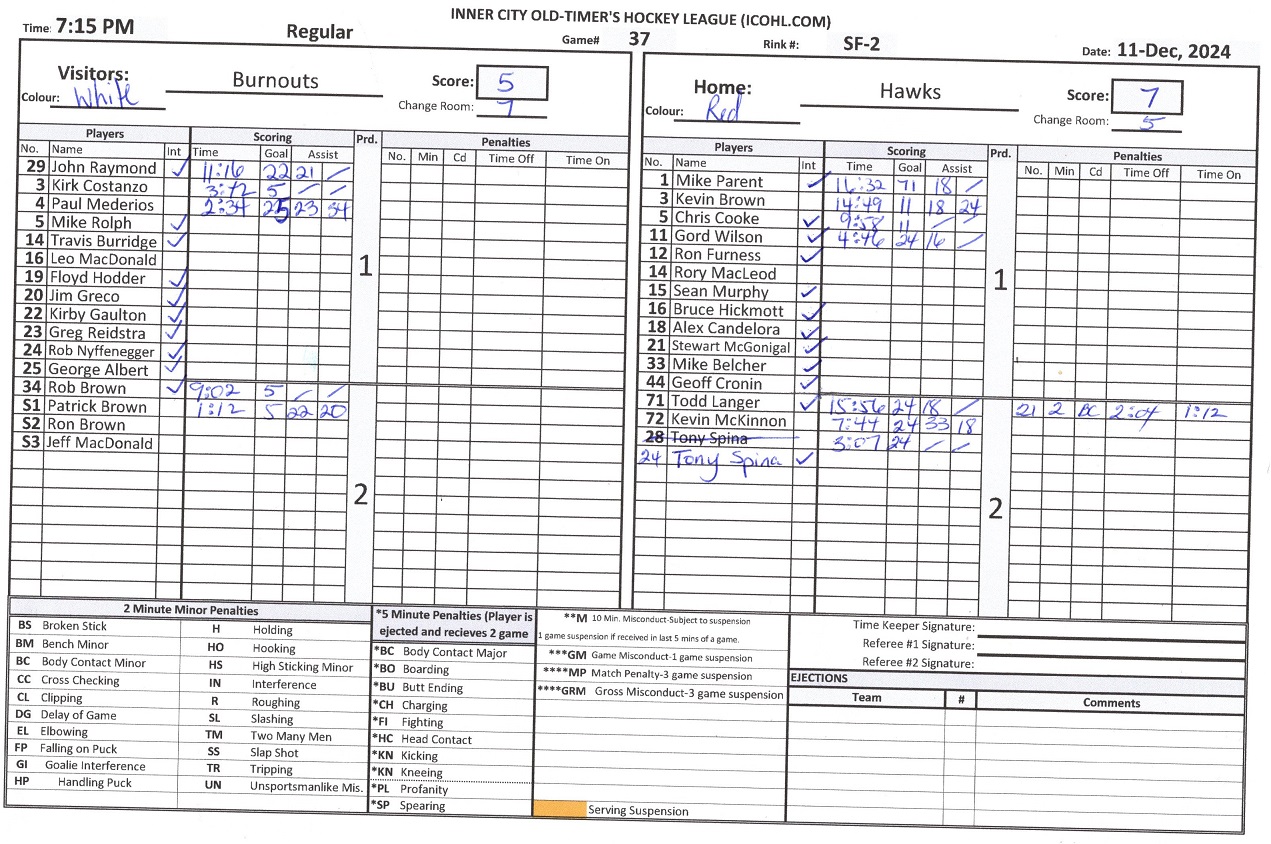 INNER CITY OLD-TIMER'S HOCKEY LEAGUE (ICOHL.COM)
Time: 7:15 PM Regular Game# 37 Rink #: SF-2 Date: 11-Dec, 2024
Visitors: Burnouts Score: 5
Colour: White Change Room: 7
Players Scoring Prd. Penalties
No. Name Int Time Goal Assist No. Min Cd Time Off Time On
29 John Raymond ✓ 11:16 22 21 /
3 Kirk Costanzo 3:42 5 / /
4 Paul Mederios 2:34 25 23 34
5 Mike Rolph ✓
14 Travis Burridge ✓
16 Leo MacDonald 1
19 Floyd Hodder ✓
20 Jim Greco ✓
22 Kirby Gaulton ✓
23 Greg Reidstra ✓
24 Rob Nyffenegger ✓
25 George Albert ✓
34 Rob Brown ✓ 9:02 5 / /
S1 Patrick Brown 1:12 5 22 20
S2 Ron Brown
S3 Jeff MacDonald
2
Home: Hawks Score: 7
Colour: Red Change Room: 5
Players Scoring Prd. Penalties
No. Name Int Time Goal Assist No. Min Cd Time Off Time On
1 Mike Parent ✓ 16:32 71 18 /
3 Kevin Brown 14:49 11 18 24
5 Chris Cooke ✓ 9:58 11 / /
11 Gord Wilson ✓ 4:46 24 16 /
12 Ron Furness ✓
14 Rory MacLeod 1
15 Sean Murphy ✓
16 Bruce Hickmott ✓
18 Alex Candelora ✓
21 Stewart McGonigal ✓
33 Mike Belcher ✓
44 Geoff Cronin ✓
71 Todd Langer ✓ 15:56 24 18 / 21 2 BC 2:04 1:12
72 Kevin McKinnon 7:44 24 33 18
28 Tony Spina 3:07 24 / /
24 Tony Spina ✓
2
2 Minute Minor Penalties
BS Broken Stick H Holding
BM Bench Minor HO Hooking
BC Body Contact Minor HS High Sticking Minor
CC Cross Checking IN Interference
CL Clipping R Roughing
DG Delay of Game SL Slashing
EL Elbowing TM Two Many Men
FP Falling on Puck SS Slap Shot
GI Goalie Interference TR Tripping
HP Handling Puck UN Unsportsmanlike Mis.
*5 Minute Penalties (Player is
ejected and recieves 2 game
*BC Body Contact Major
*BO Boarding
*BU Butt Ending
*CH Charging
*FI Fighting
*HC Head Contact
*KN Kicking
*KN Kneeing
*PL Profanity
*SP Spearing
**M 10 Min. Misconduct-Subject to suspension
1 game suspension if received in last 5 mins of a game.
***GM Game Misconduct-1 game suspension
****MP Match Penalty-3 game suspension
****GRM Gross Misconduct-3 game suspension
Serving Suspension
Time Keeper Signature:
Referee #1 Signature:
Referee #2 Signature:
EJECTIONS
Team # Comments